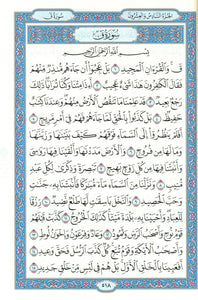 الجزء السادس والعشرون سورة ق
سورة ق
بسم الله الرحمن الرحيم
ق والقرءان المجيد ١ بل عجبوا أن جاءهم منذر منهم
فقال الكافرون هذا شيء عجيب ٢ أءذا متنا وكنا ترابا ذلك
رجع بعيد ٣ قد علمنا ما تنقص الأرض منهم وعندنا كتاب
حفيظ ٤ بل كذبوا بالحق لما جاءهم فهم في أمر مريج ٥
أفلم ينظروا إلى السماء فوقهم كيف بنيناها وزيناها
وما لها من فروج ٦ والأرض مددناها وألقينا فيها رواسي
وأنبتنا فيها من كل زوج بهيج ٧ تبصرة وذكرى لكل عبد
منيب ٨ ونزلنا من السماء ماء مباركا فأنبتنا به جنات
وحب الحصيد ٩ والنخل باسقات لها طلع نضيد ١٠ رزقا
للعباد وأحيينا به بلدة ميتا كذلك الخروج ١١ كذبت قبلهم
قوم نوح وأصحاب الرس وثمود ١٢ وعاد وفرعون وإخوان لوط ١٣
وأصحاب الأيكة وقوم تبع كل كذب الرسل فحق وعيد ١٤
أفعيينا بالخلق الأول بل هم في لبس من خلق جديد ١٥
٥١٨